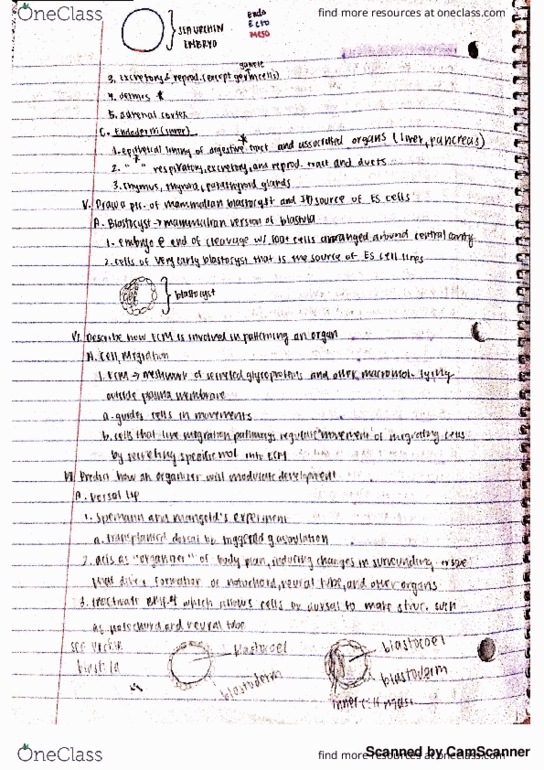 OneClass
find more resources at oneclass.com
SEA URCHIN
EMBRYO
Endo
Ecto
Meso
gamete
3. excretory & reprod. (except germ cells)
4. dermis *
5. adrenal cortex
C. Endoderm (inner)
1. epithelial lining of digestive tract and associated organs (liver, pancreas)
2. " " respiratory, excretory, and reprod. tract and ducts
3. thymus, thyroid, parathyroid glands
V. Draw a pic. of mammalian blastocyst and ID source of ES cells
A. Blastocyst → mammalian version of blastula
1. embryo @ end of cleavage w/ 100+ cells arranged around central cavity
2. cells of very early blastocyst that is the source of ES cell lines
blastocyst
VI. Describe how ECM is involved in patterning an organ
A. Cell Migration
1. ECM → meshwork of secreted glycoproteins and other macromol. lying
outside plasma membrane
a. guides cells in movements
b. cells that line migration pathways regulate movement of migrating cells
by secreting specific mol into ECM
Predict how an organizer will modulate development
A. Dorsal Lip
1. Spemann and Mangold's experiment
a. transplanted dorsal lip triggered gastrulation
2. acts as "organizer" of body plan, inducing changes in surrounding
formation of notochord, neural tube, and other organs
3. inactivate BMP-4 which allows cells on dorsal to make struc. such
as notochord and neural tube
blastocoel
blastoderm
blastocoel
blastoderm
inner cell mass
OneClass
find more resources at oneclass.com
Scanned by CamScanner